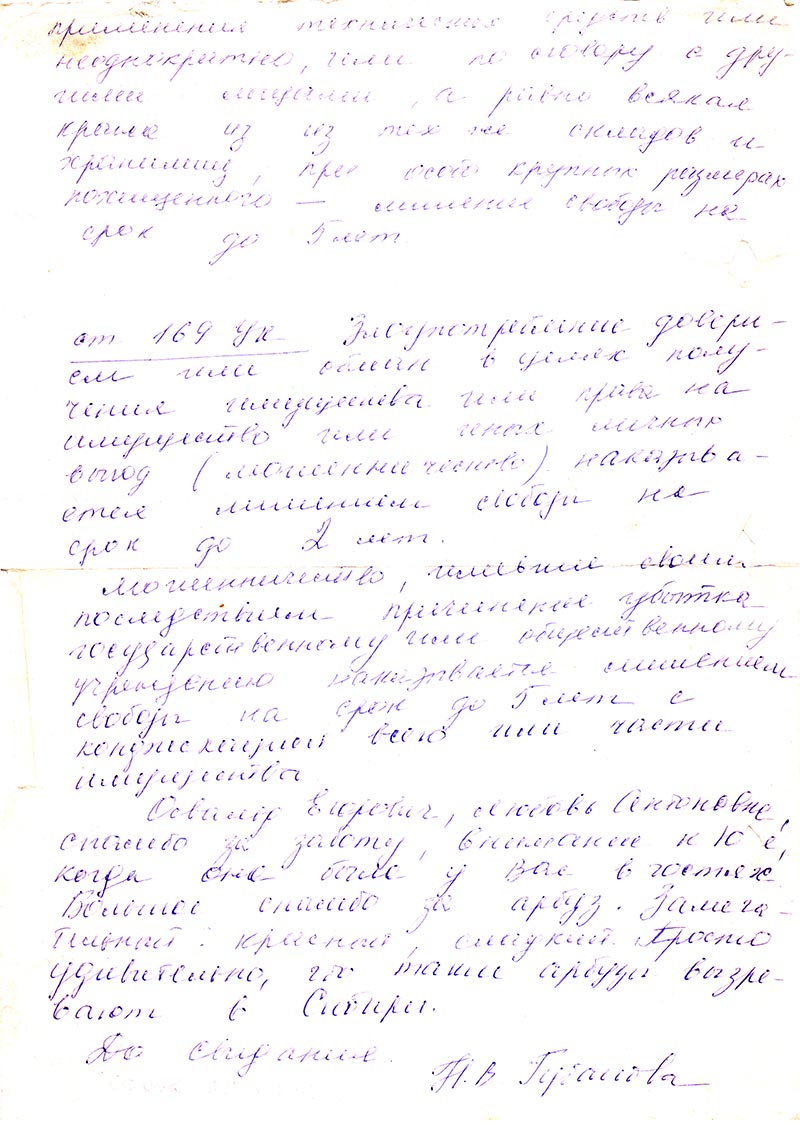 применения технических средств или
неоднократно, или по сговору с дру-
гими лицами, а равно всякая
кража из из тех же складов и
хранилищ, при особо крупных размерах
похищенного — лишение свободы на
срок до 5 лет.
ст. 169 УК Злоупотребление довери-
ем или обман в целях полу-
чения имущества или права на
имущество или иных личных
выгод (мошенничество) наказыва-
ется лишением свободы на
срок до 2 лет.
Мошенничество, имевшие своим
последствием причинение убытка
государственному или общественному
учреждению наказывается лишением
свободы на срок до 5 лет с
конфискацией всего или части
имущества
Освальд Егорович, Любовь Антоновна,
спасибо за заботу, внимание к Юле,
когда она была у Вас в гостях.
Большое спасибо за арбуз. Замеча-
тельный: красный, сладкий. Просто
удивительно, что такие арбузы вызре-
вают в Сибири.
До свидания.
Н. В